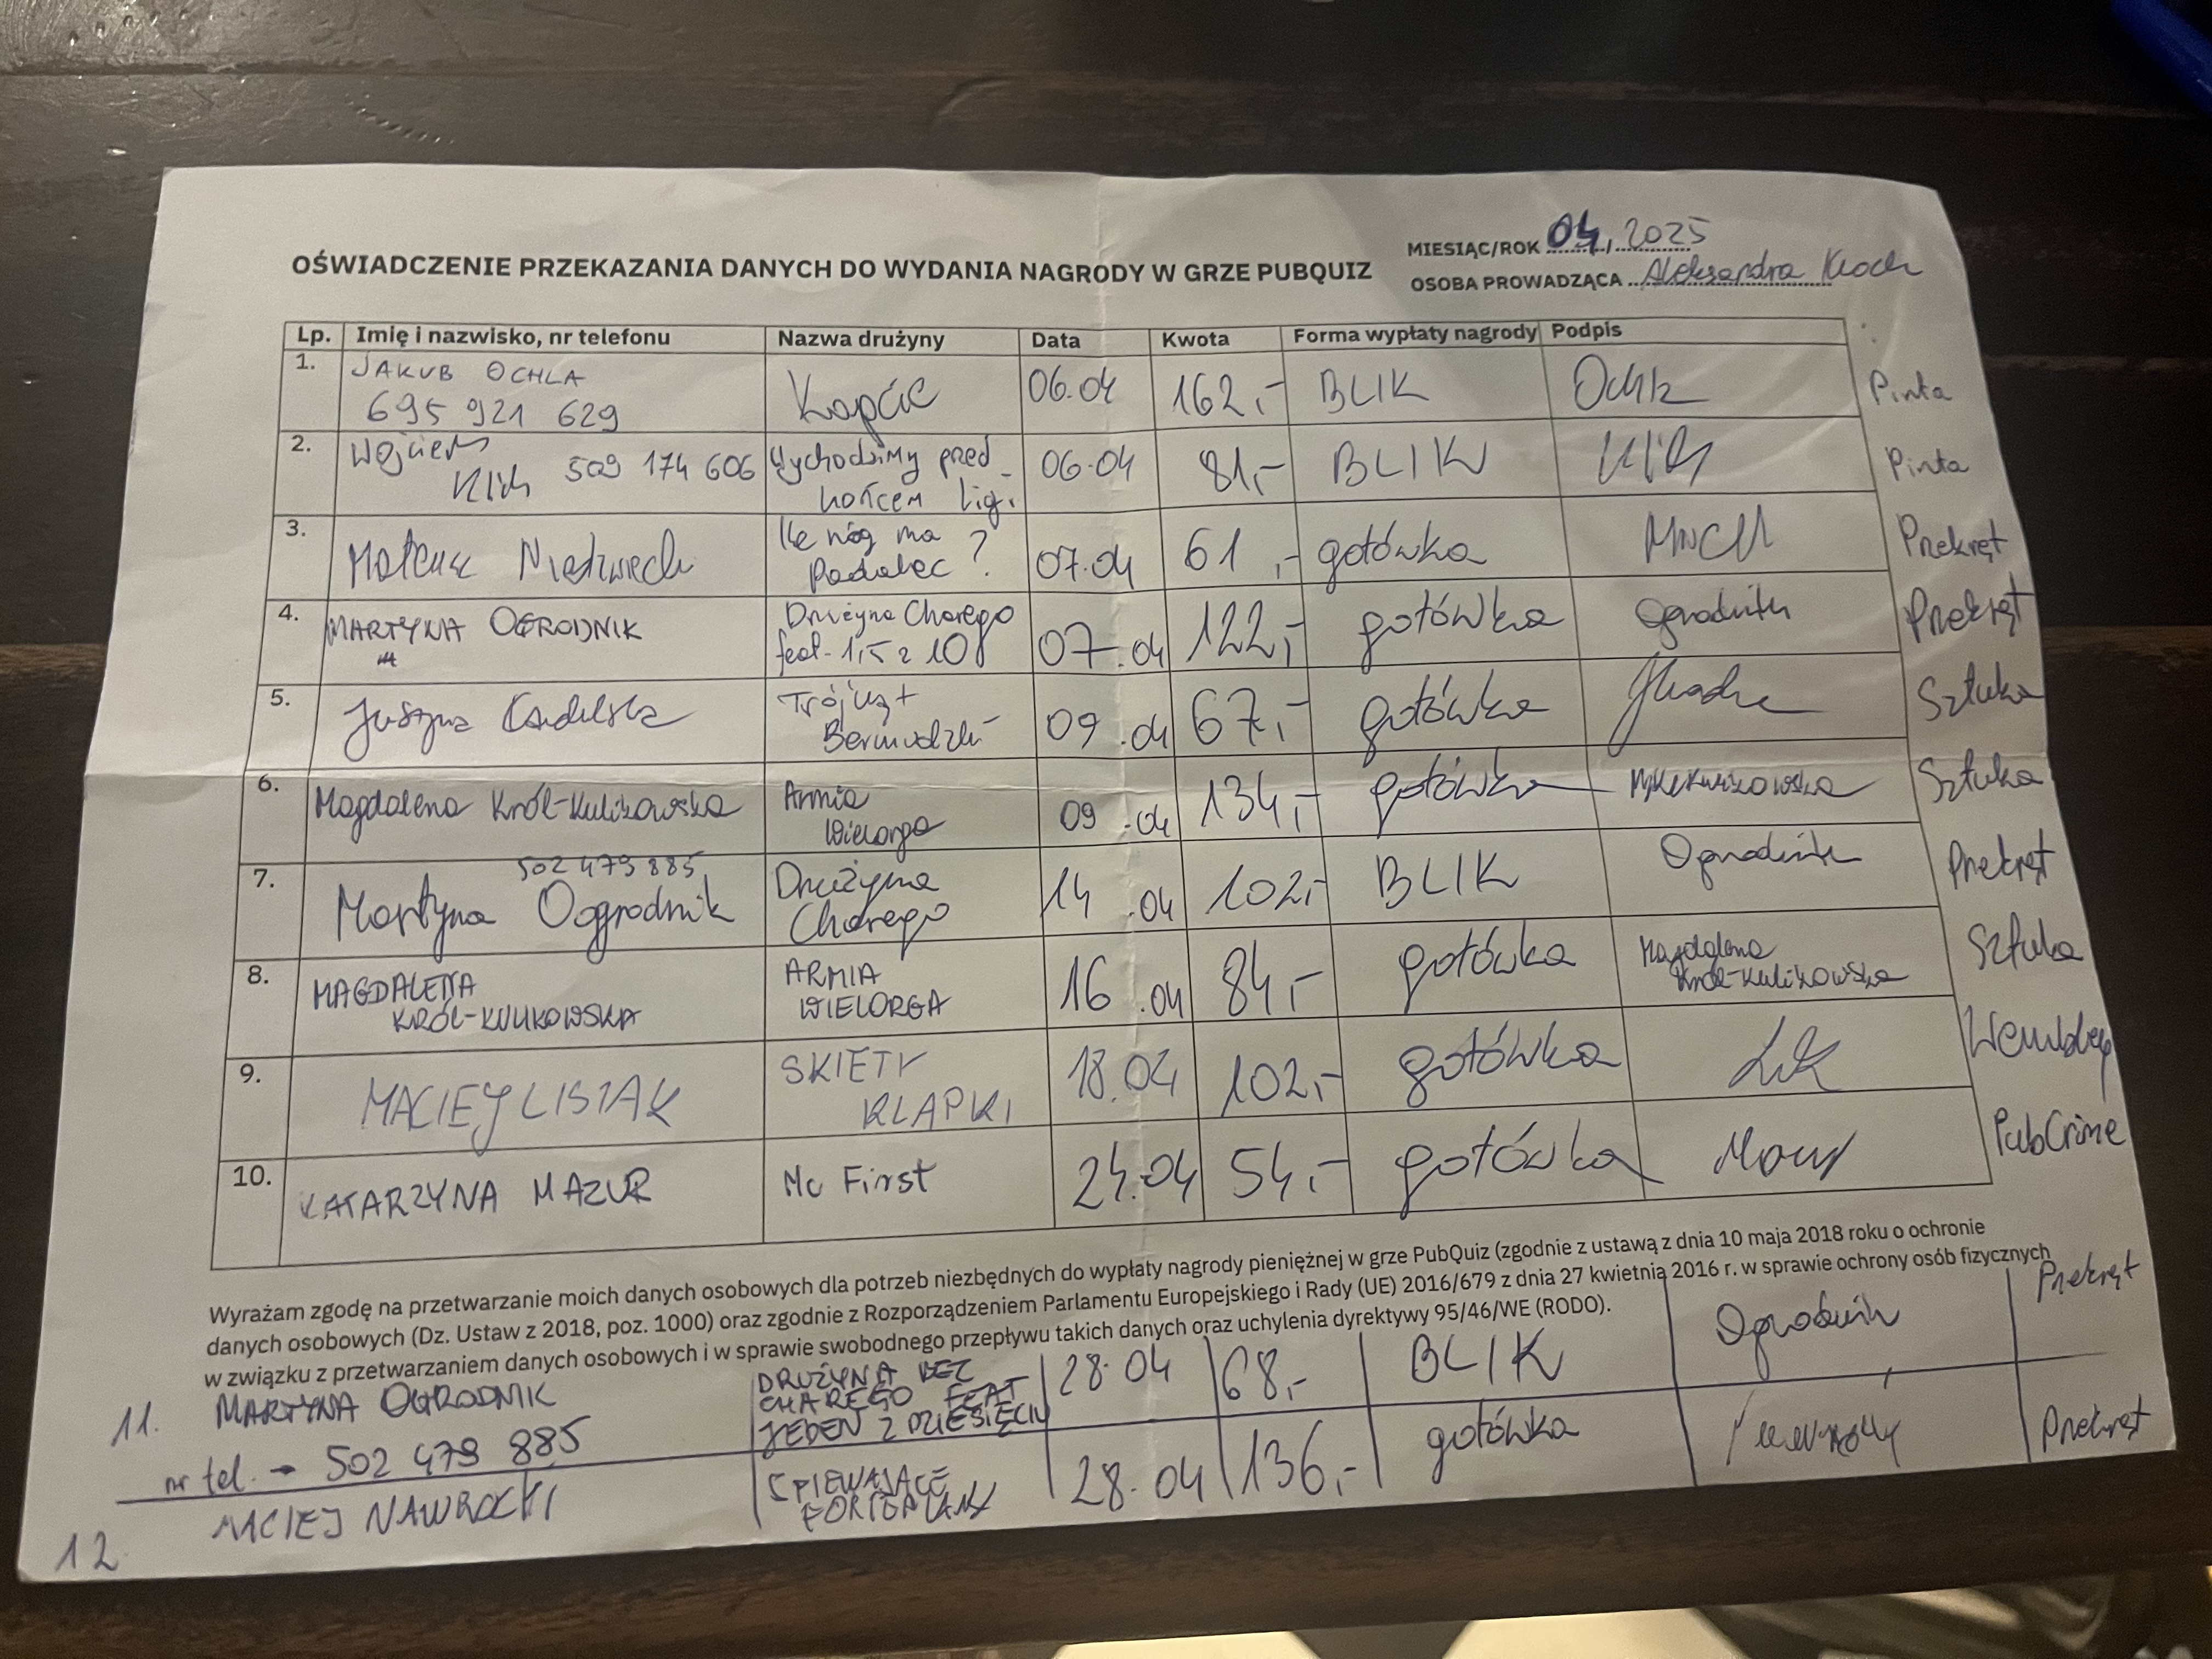 MIESIĄC/ROK 04, 2025
OŚWIADCZENIE PRZEKAZANIA DANYCH DO WYDANIA NAGRODY W GRZE PUBQUIZ
OSOBA PROWADZĄCA Aleksandra
Lp. Imię i nazwisko, nr telefonu Nazwa drużyny Data Kwota Forma wypłaty nagrody Podpis
1. JAKUB OCHLA Kapcie 06.04 162,- BLIK Pinta
695 921 629
2. Wojciech Wychodzimy przed 06.04 81,- BLIK Pinta
Klich 509 174 606 końcem ligi
3. Mateusz Ile nóg ma 07.04 61,- gotówka Przekręt
Padalec?
4. MARTYNA OGRODNIK Drużyna Chorego 07.04 122,- gotówka Ogrodnik Przekręt
feat. 1,5 z 10
5. Justyna Trójkąt 09.04 67,- gotówka Sztuka
Bermudzki
6. Magdalena Król-Kulikowska Armia 09.04 134,- gotówka Sztuka
Wielorga
7. 502 479 885 Drużyna 14.04 102,- BLIK Ogrodnik Przekręt
Martyna Ogrodnik Chorego
8. MAGDALENA ARMIA 16.04 84,- gotówka Magdalena Sztuka
KRÓL-KULIKOWSKA WIELORGA Król-Kulikowska
9. MACIEJ LISIAK SKIETY 18.04 102,- gotówka Wembley
KLAPKI
10. KATARZYNA MAZUR Mc First 24.04 54,- gotówka PubCrime
Wyrażam zgodę na przetwarzanie moich danych osobowych dla potrzeb niezbędnych do wypłaty nagrody pieniężnej w grze PubQuiz (zgodnie z ustawą z dnia 10 maja 2018 roku o ochronie
danych osobowych (Dz. Ustaw z 2018, poz. 1000) oraz zgodnie z Rozporządzeniem Parlamentu Europejskiego i Rady (UE) 2016/679 z dnia 27 kwietnia 2016 r. w sprawie ochrony osób fizycznych
w związku z przetwarzaniem danych osobowych i w sprawie swobodnego przepływu takich danych oraz uchylenia dyrektywy 95/46/WE (RODO).
11. MARTYNA OGRODNIK DRUŻYNA BEZ 28.04 68,- BLIK Ogrodnik Przekręt
CHAREGO FEAT
JEDEN Z DZIESIĘCIU
nr tel. → 502 479 885
12 MACIEJ NAWROCKI ŚPIEWAJĄCE 28.04 136,- gotówka Przekręt
FORTEPIANY